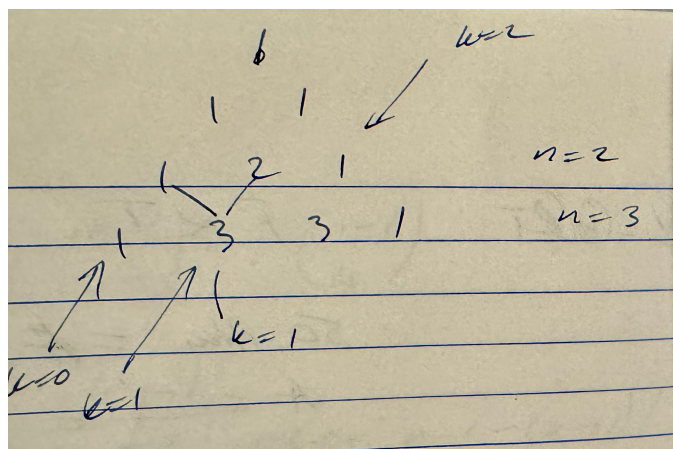 k=2
1 1
1 2 1 n=2
1 3 3 1 n=3
k=1
k=0
k=1